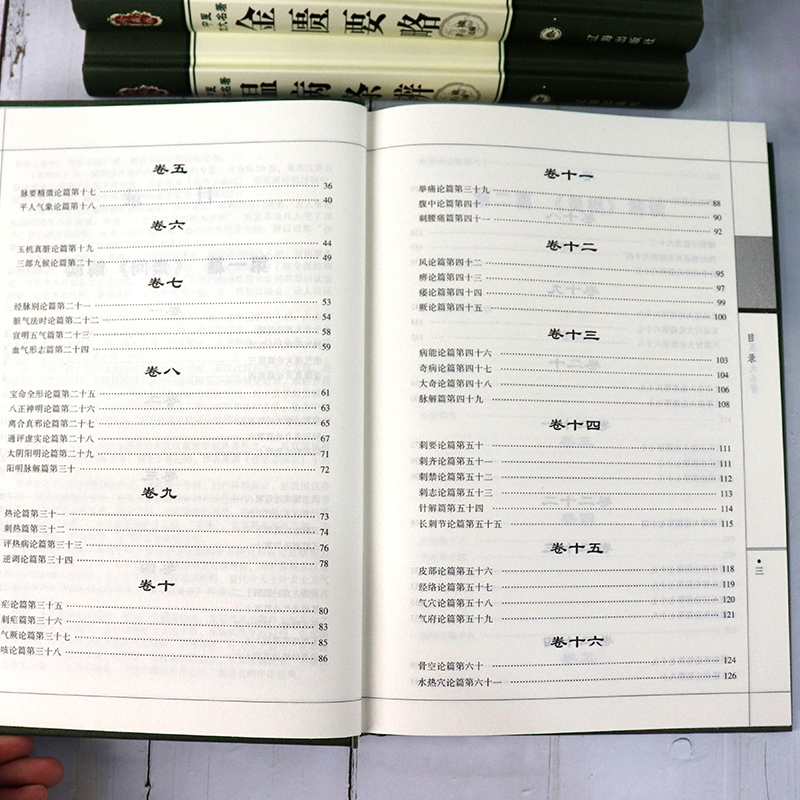 中医
金匮要略
辽海出版社
温病条辨
辽海出版社
卷五
脉要精微论篇第十七 36
平人气象论篇第十八 40
卷六
玉机真脏论篇第十九 44
三部九候论篇第二十 49
卷七
经脉别论篇第二十一 53
脏气法时论篇第二十二 54
宣明五气篇第二十三 58
血气形志篇第二十四 59
卷八
宝命全形论篇第二十五 61
八正神明论篇第二十六 63
离合真邪论篇第二十七 65
通评虚实论篇第二十八 67
太阴阳明论篇第二十九 71
阳明脉解篇第三十 72
卷九
热论篇第三十一 73
刺热篇第三十二 74
评热病论篇第三十三 76
逆调论篇第三十四 78
卷十
疟论篇第三十五 80
刺疟篇第三十六 83
气厥论篇第三十七 85
咳论篇第三十八 86
卷十一
举痛论篇第三十九 88
腹中论篇第四十 90
刺腰痛篇第四十一 92
卷十二
风论篇第四十二 95
痹论篇第四十三 97
痿论篇第四十四 99
厥论篇第四十五 100
卷十三
病能论篇第四十六 103
奇病论篇第四十七 104
大奇论篇第四十八 106
脉解篇第四十九 108
卷十四
刺要论篇第五十 111
刺齐论篇第五十一 111
刺禁论篇第五十二 112
刺志论篇第五十三 113
针解篇第五十四 114
长刺节论篇第五十五 115
卷十五
皮部论篇第五十六 118
经络论篇第五十七 119
气穴论篇第五十八 120
气府论篇第五十九 121
卷十六
骨空论篇第六十 124
水热穴论篇第六十一 126
目录
三